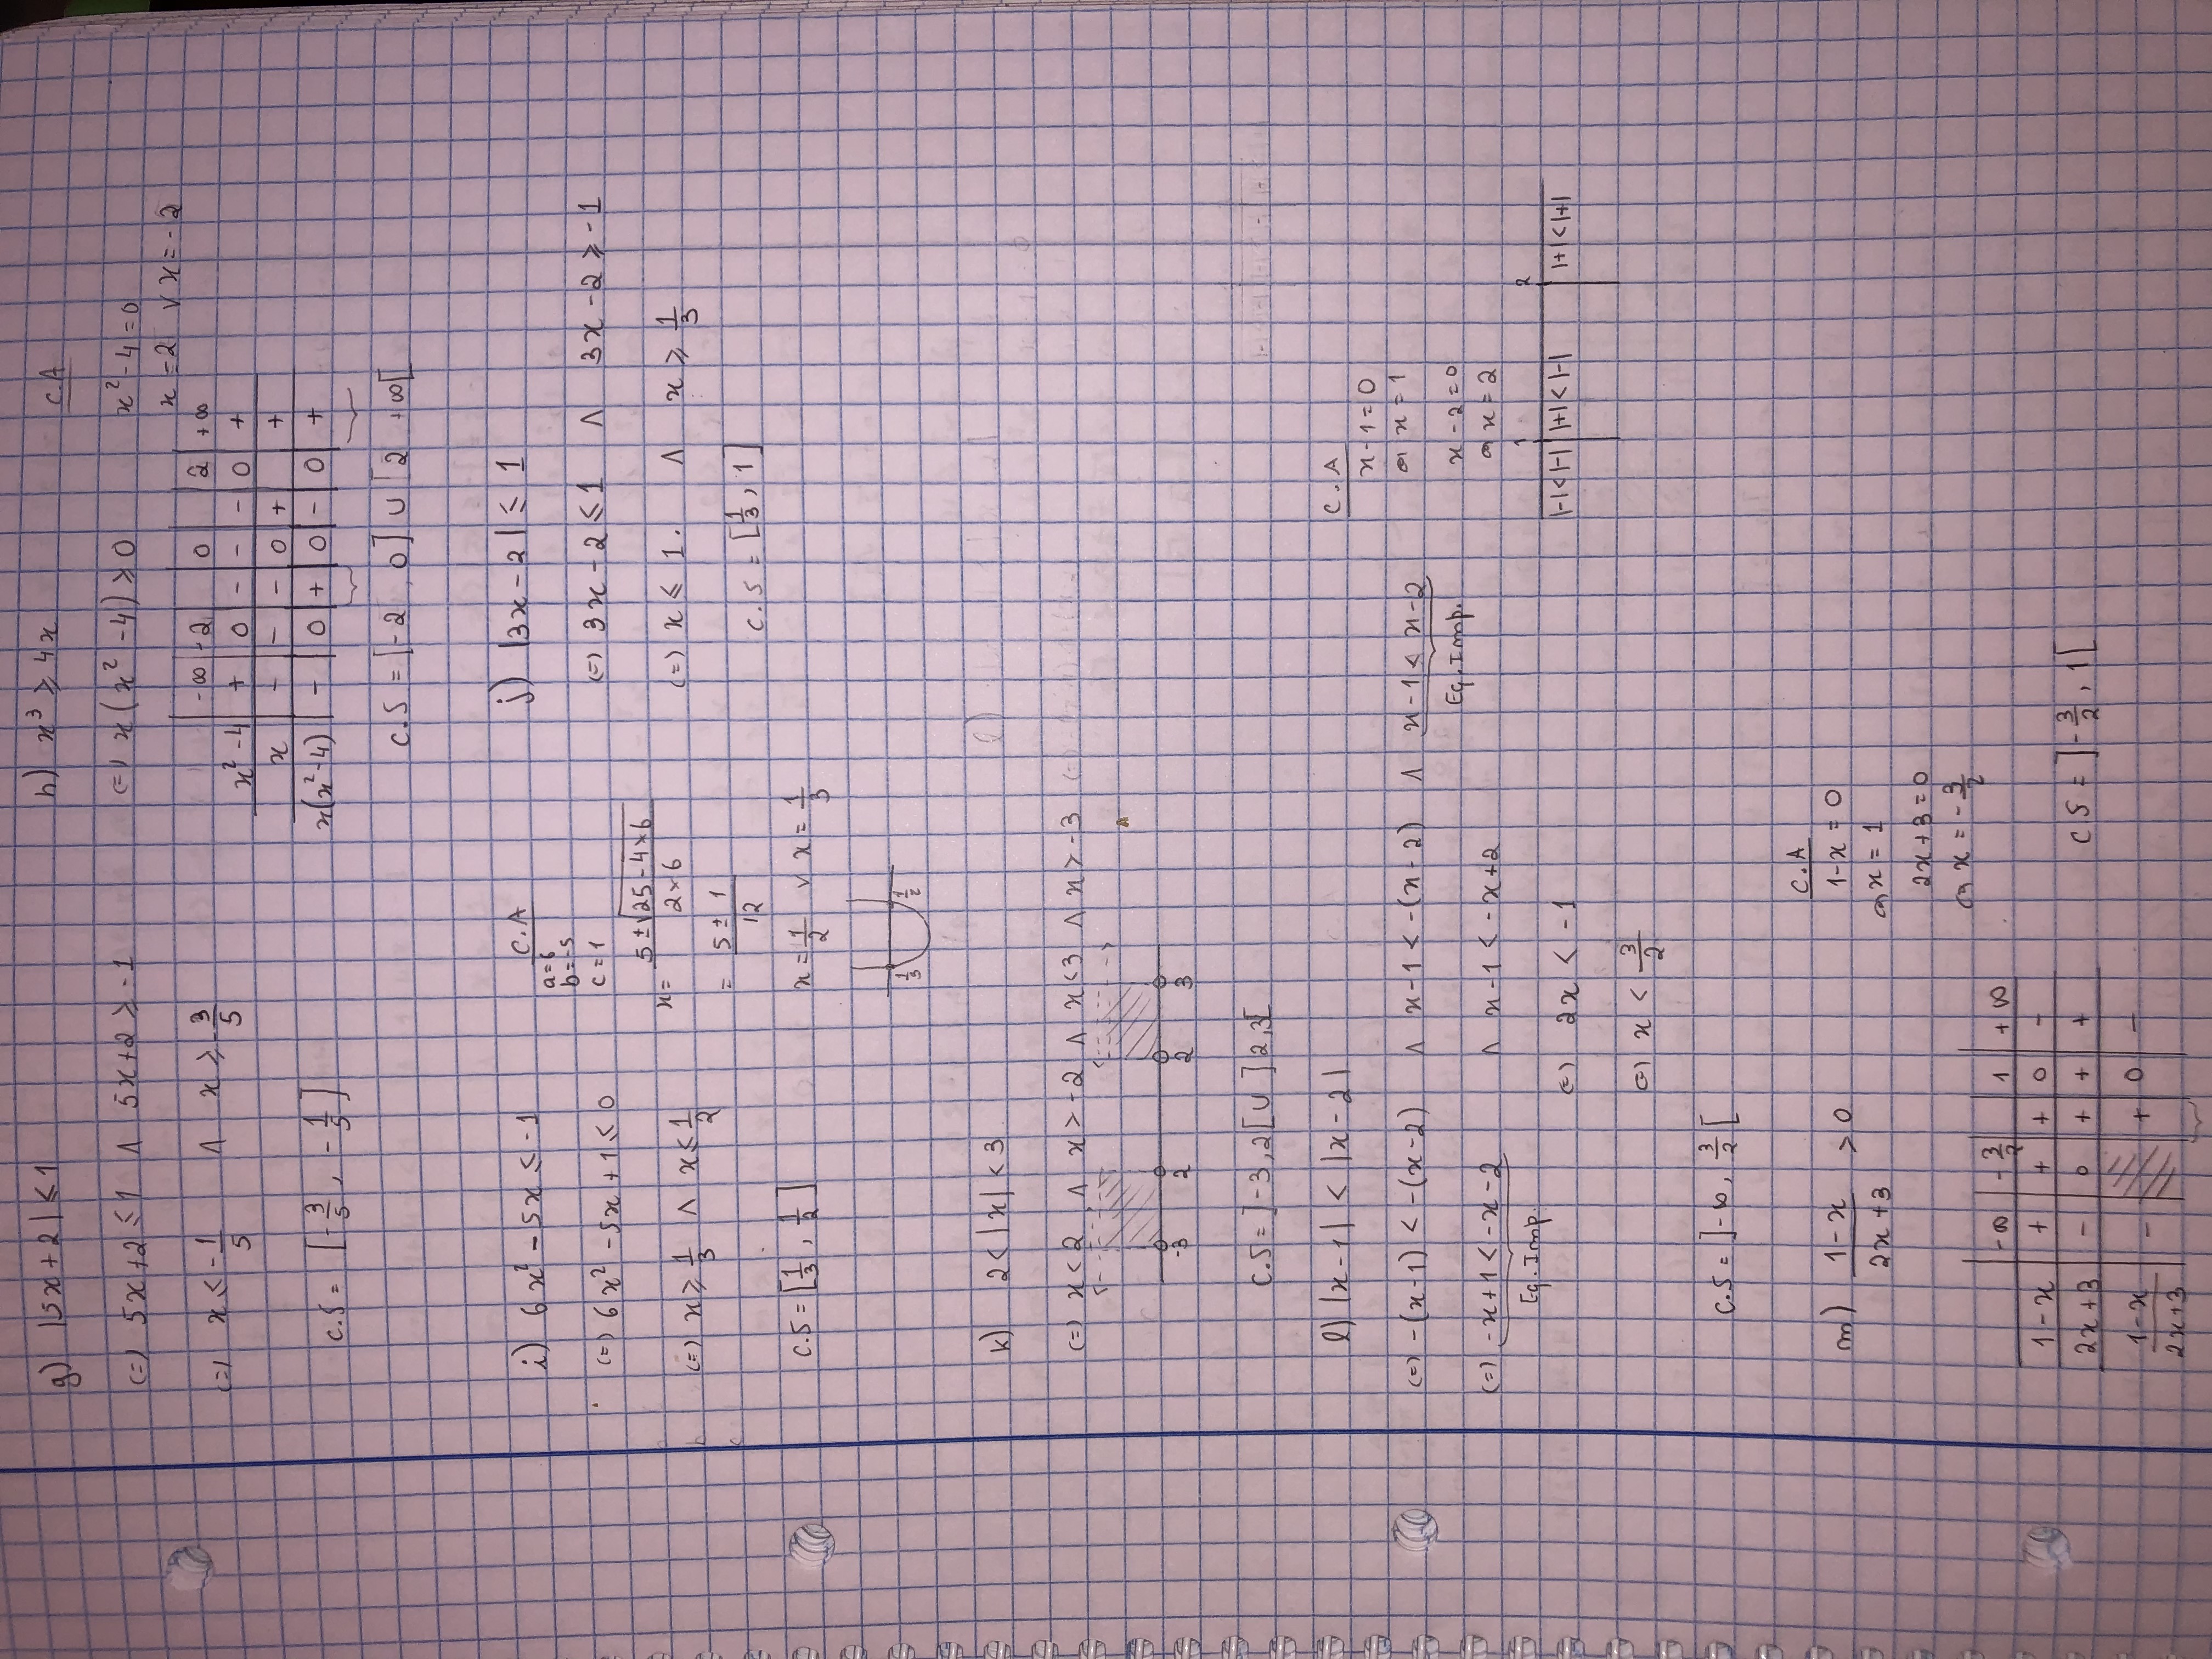 g) |5x+2| ≤ 1
(=) 5x+2 ≤ 1 ∧ 5x+2 ≥ -1
(=) x ≤ -1/5 ∧ x ≥ -3/5
C.S = [-3/5, -1/5]
h) x³ ≥ 4x
(=) x(x²-4) ≥ 0
C.A
x²-4=0
x=2 ∨ x=-2
-∞ -2 0 2 +∞
x²-4 + 0 - - - 0 +
x - - - 0 + +
x(x²-4) - 0 + 0 - 0 +
C.S = [-2, 0] ∪ [2 +∞[
i) 6x² - 5x ≤ -1
(=) 6x² - 5x + 1 ≤ 0
(=) x ≥ 1/3 ∧ x ≤ 1/2
C.S = [1/3, 1/2]
C.A
a=6
b=-5
c=1
x = 5 ± √25-4×6 / 2×6
= 5 ± 1 / 12
x = 1/2 ∨ x = 1/3
1/3 1/2
j) |3x-2| ≤ 1
(=) 3x-2 ≤ 1 ∧ 3x-2 ≥ -1
(=) x ≤ 1. ∧ x ≥ 1/3
C.S = [1/3, 1]
k) 2 < |x| < 3
(=) x < 2 ∧ x > -2 ∧ x < 3 ∧ x > -3
-3 2 2 3
C.S = ]-3, 2[ ∪ ]2, 3[
l) |x-1| < |x-2|
(=) -(x-1) < -(x-2) ∧ x-1 < -(x-2) ∧ x-1 < x-2
Eq. Imp.
(=) -x+1 < -x-2 ∧ x-1 < -x+2
Eq. Imp.
(=) 2x < -1
(=) x < 3/2
C.S = ]-∞, 3/2[
C.A
x-1=0
x=1
x-2=0
x=2
1 2
|-|<|-| |+|<|-| |+|<|+|
m) 1-x / 2x+3 > 0
C.A
1-x=0
x=1
2x+3=0
x=-3/2
-∞ -3/2 1 +∞
1-x + + + 0 -
2x+3 - 0 + + +
1-x / 2x+3 - + 0 -
C S = ]-3/2, 1[